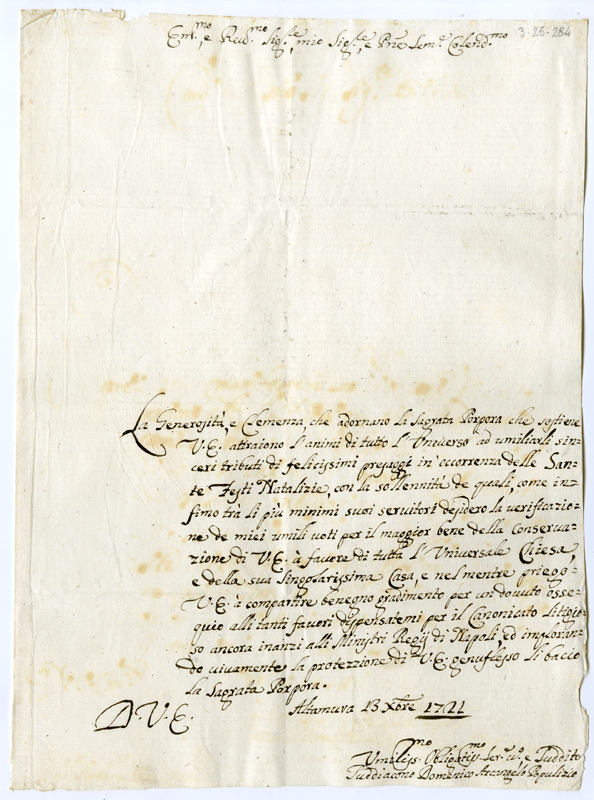 Em.mo, e Reu.mo Sig.re, mio Sig.re, e Pne Sem.e Colend.mo
3-25-284
La Generosità, e Clemenza, che adornano la Sagrata Porpora che sostiene
V.E. attraiono l'animi di tutto l'Universo ad umiliarli sin=
ceri tributi di felicissimi presaggi in occorrenza delle San=
te Festi Natalizie, con la sollennità de quali, come in=
fimo trà li più minimi suoi servitori desidero la verificazio=
ne de miei umili voti per il maggior bene della Conserva=
zione di V.E. à favore di tutta l'Universale Chiesa,
e della sua Singolarissima Casa, e nel mentre priego
V.E. à compartire benegno gradimento per un dovuto osse=
quio alli tanti favori dispensatemi per il Canonicato litigio=
so ancora inanzi alli Ministri Regij di Napoli, ed imploran=
do vivamente la protezzione di V.E. genuflesso li bacio
la Sagrata Porpora.
Altamura 13 Xbre 1721
D V.E.
Umiliss.mo Obligatiss.mo Ser.e u.o e Suddito
Suddiacono Domenico Arcangelo Popolizio